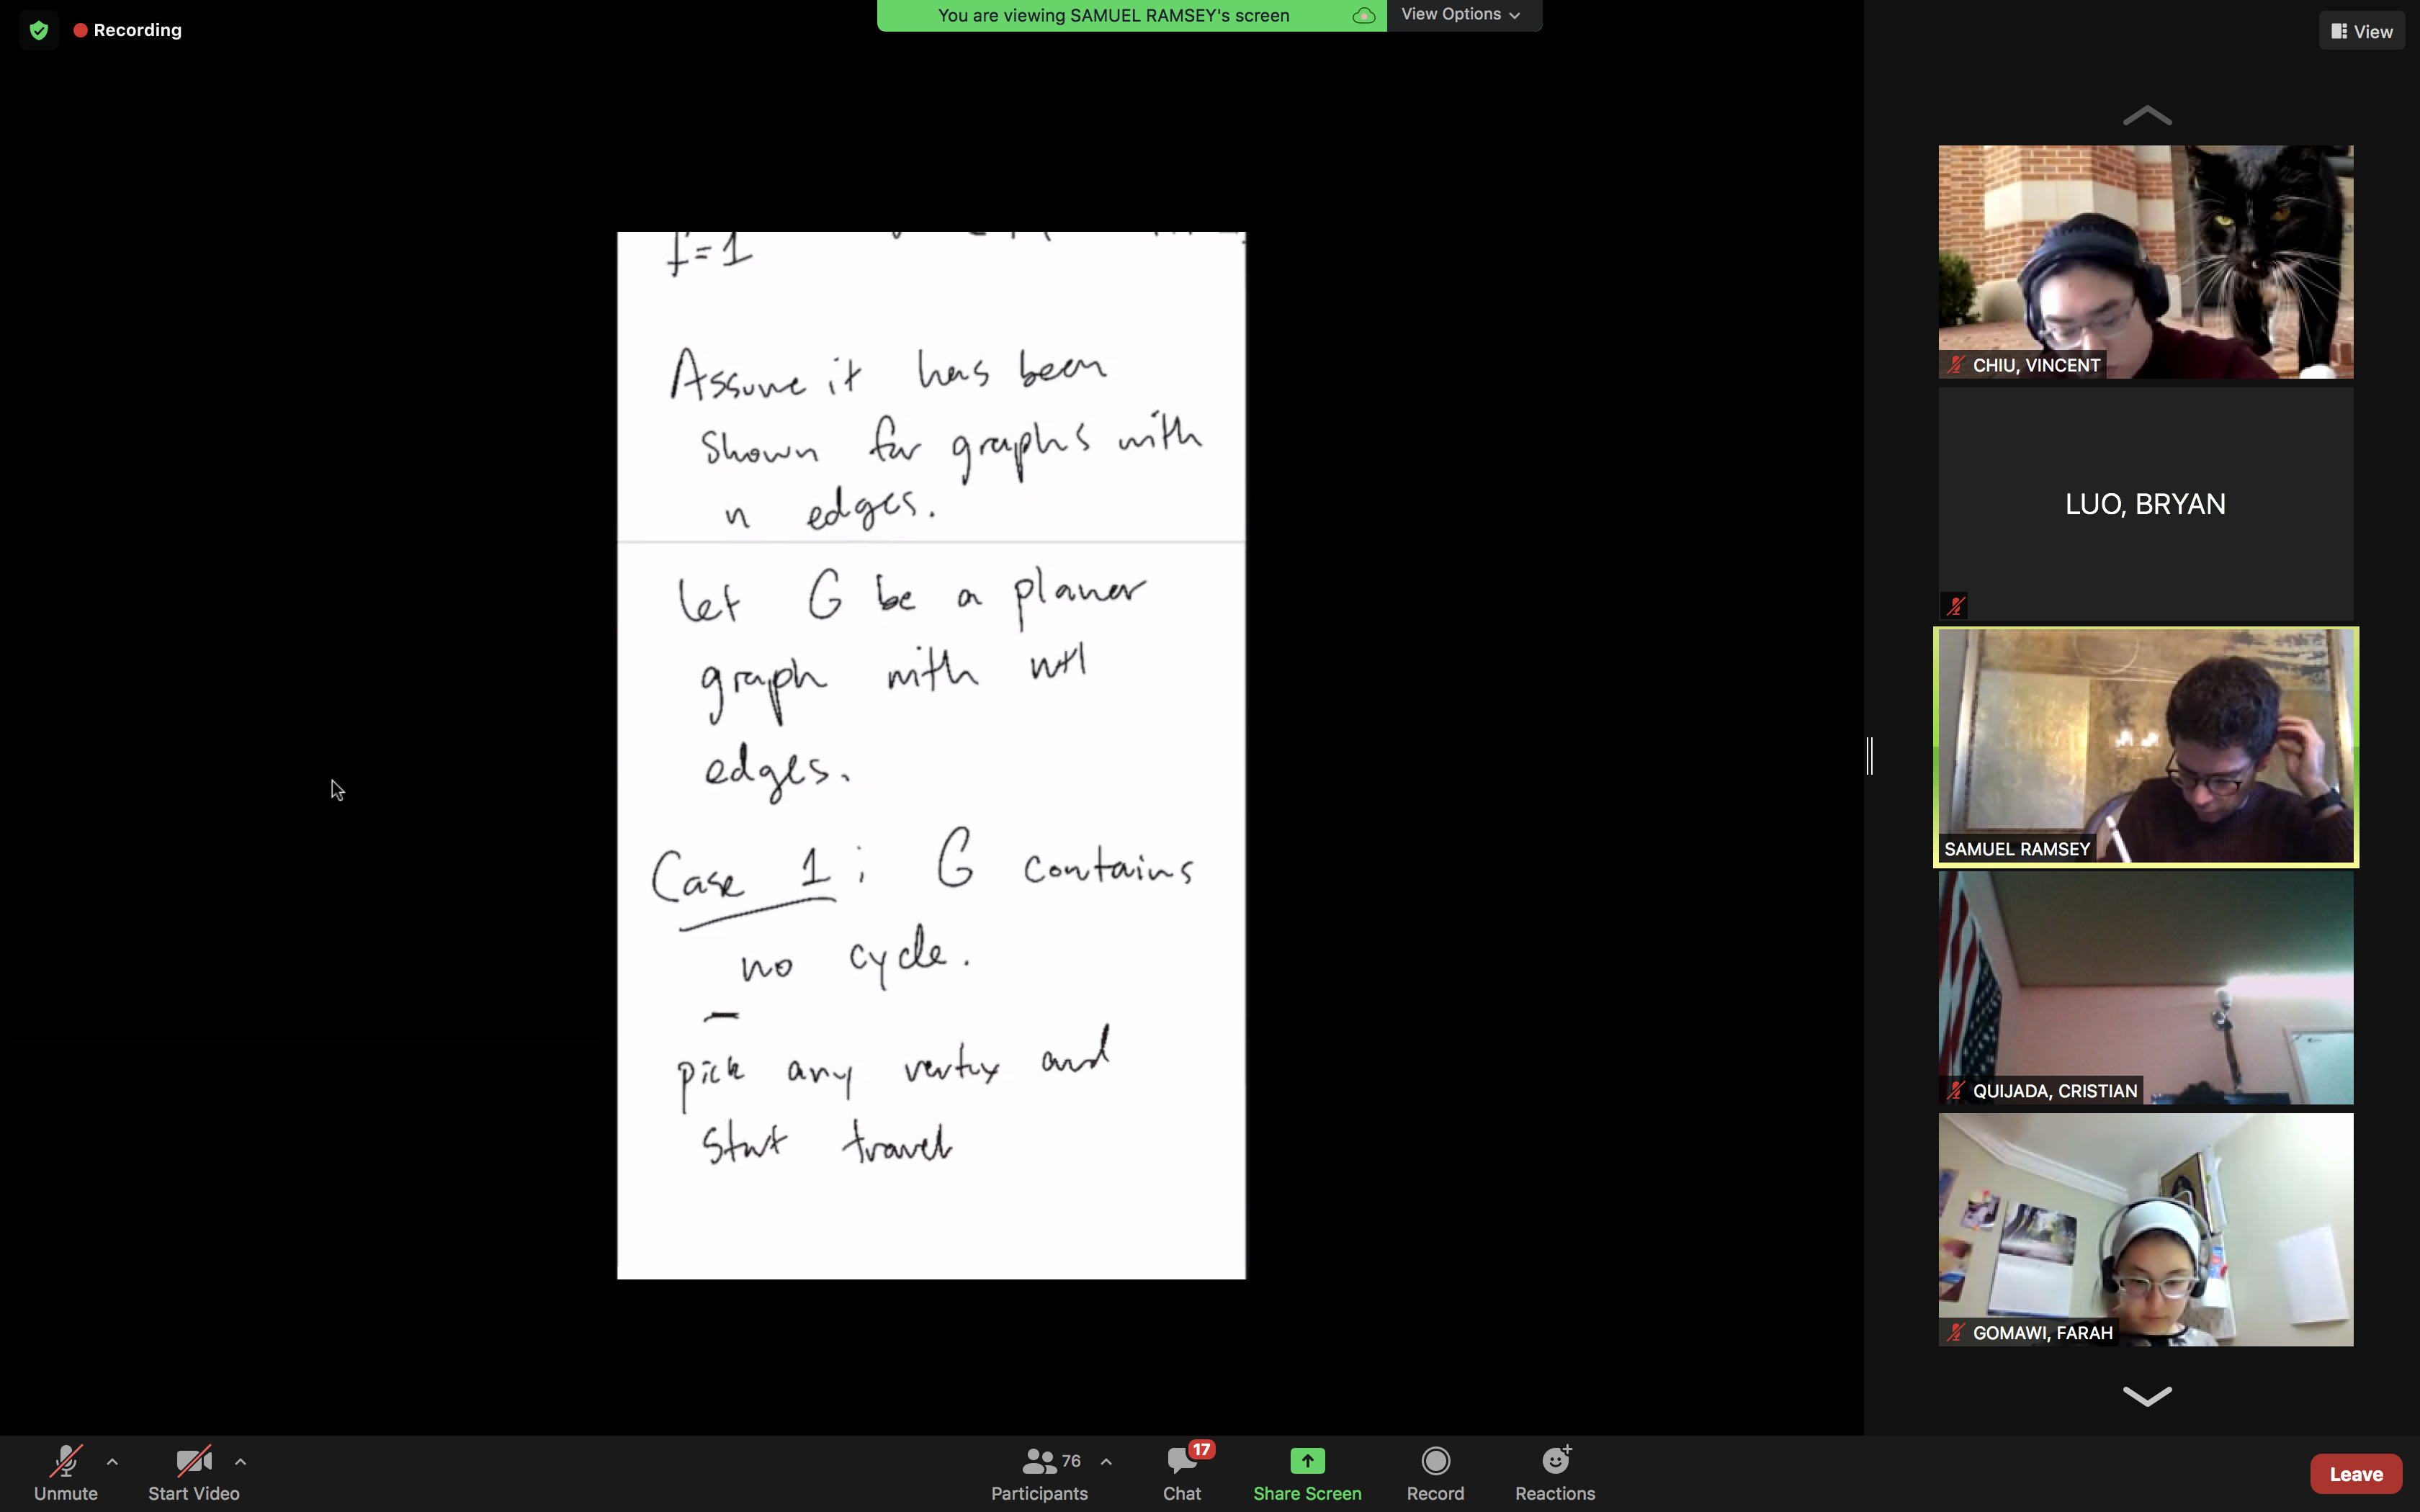 You are viewing SAMUEL RAMSEY's screen
View Options
Recording
View
f=1
Assume it has been
shown for graphs with
n edges.
let G be a planer
graph with n+1
edges.
Case 1: G contains
no cycle.
pick any vertex and
start travel
CHIU, VINCENT
LUO, BRYAN
SAMUEL RAMSEY
QUIJADA, CRISTIAN
GOMAWI, FARAH
Unmute
Start Video
76
Participants
17
Chat
Share Screen
Record
Reactions
Leave